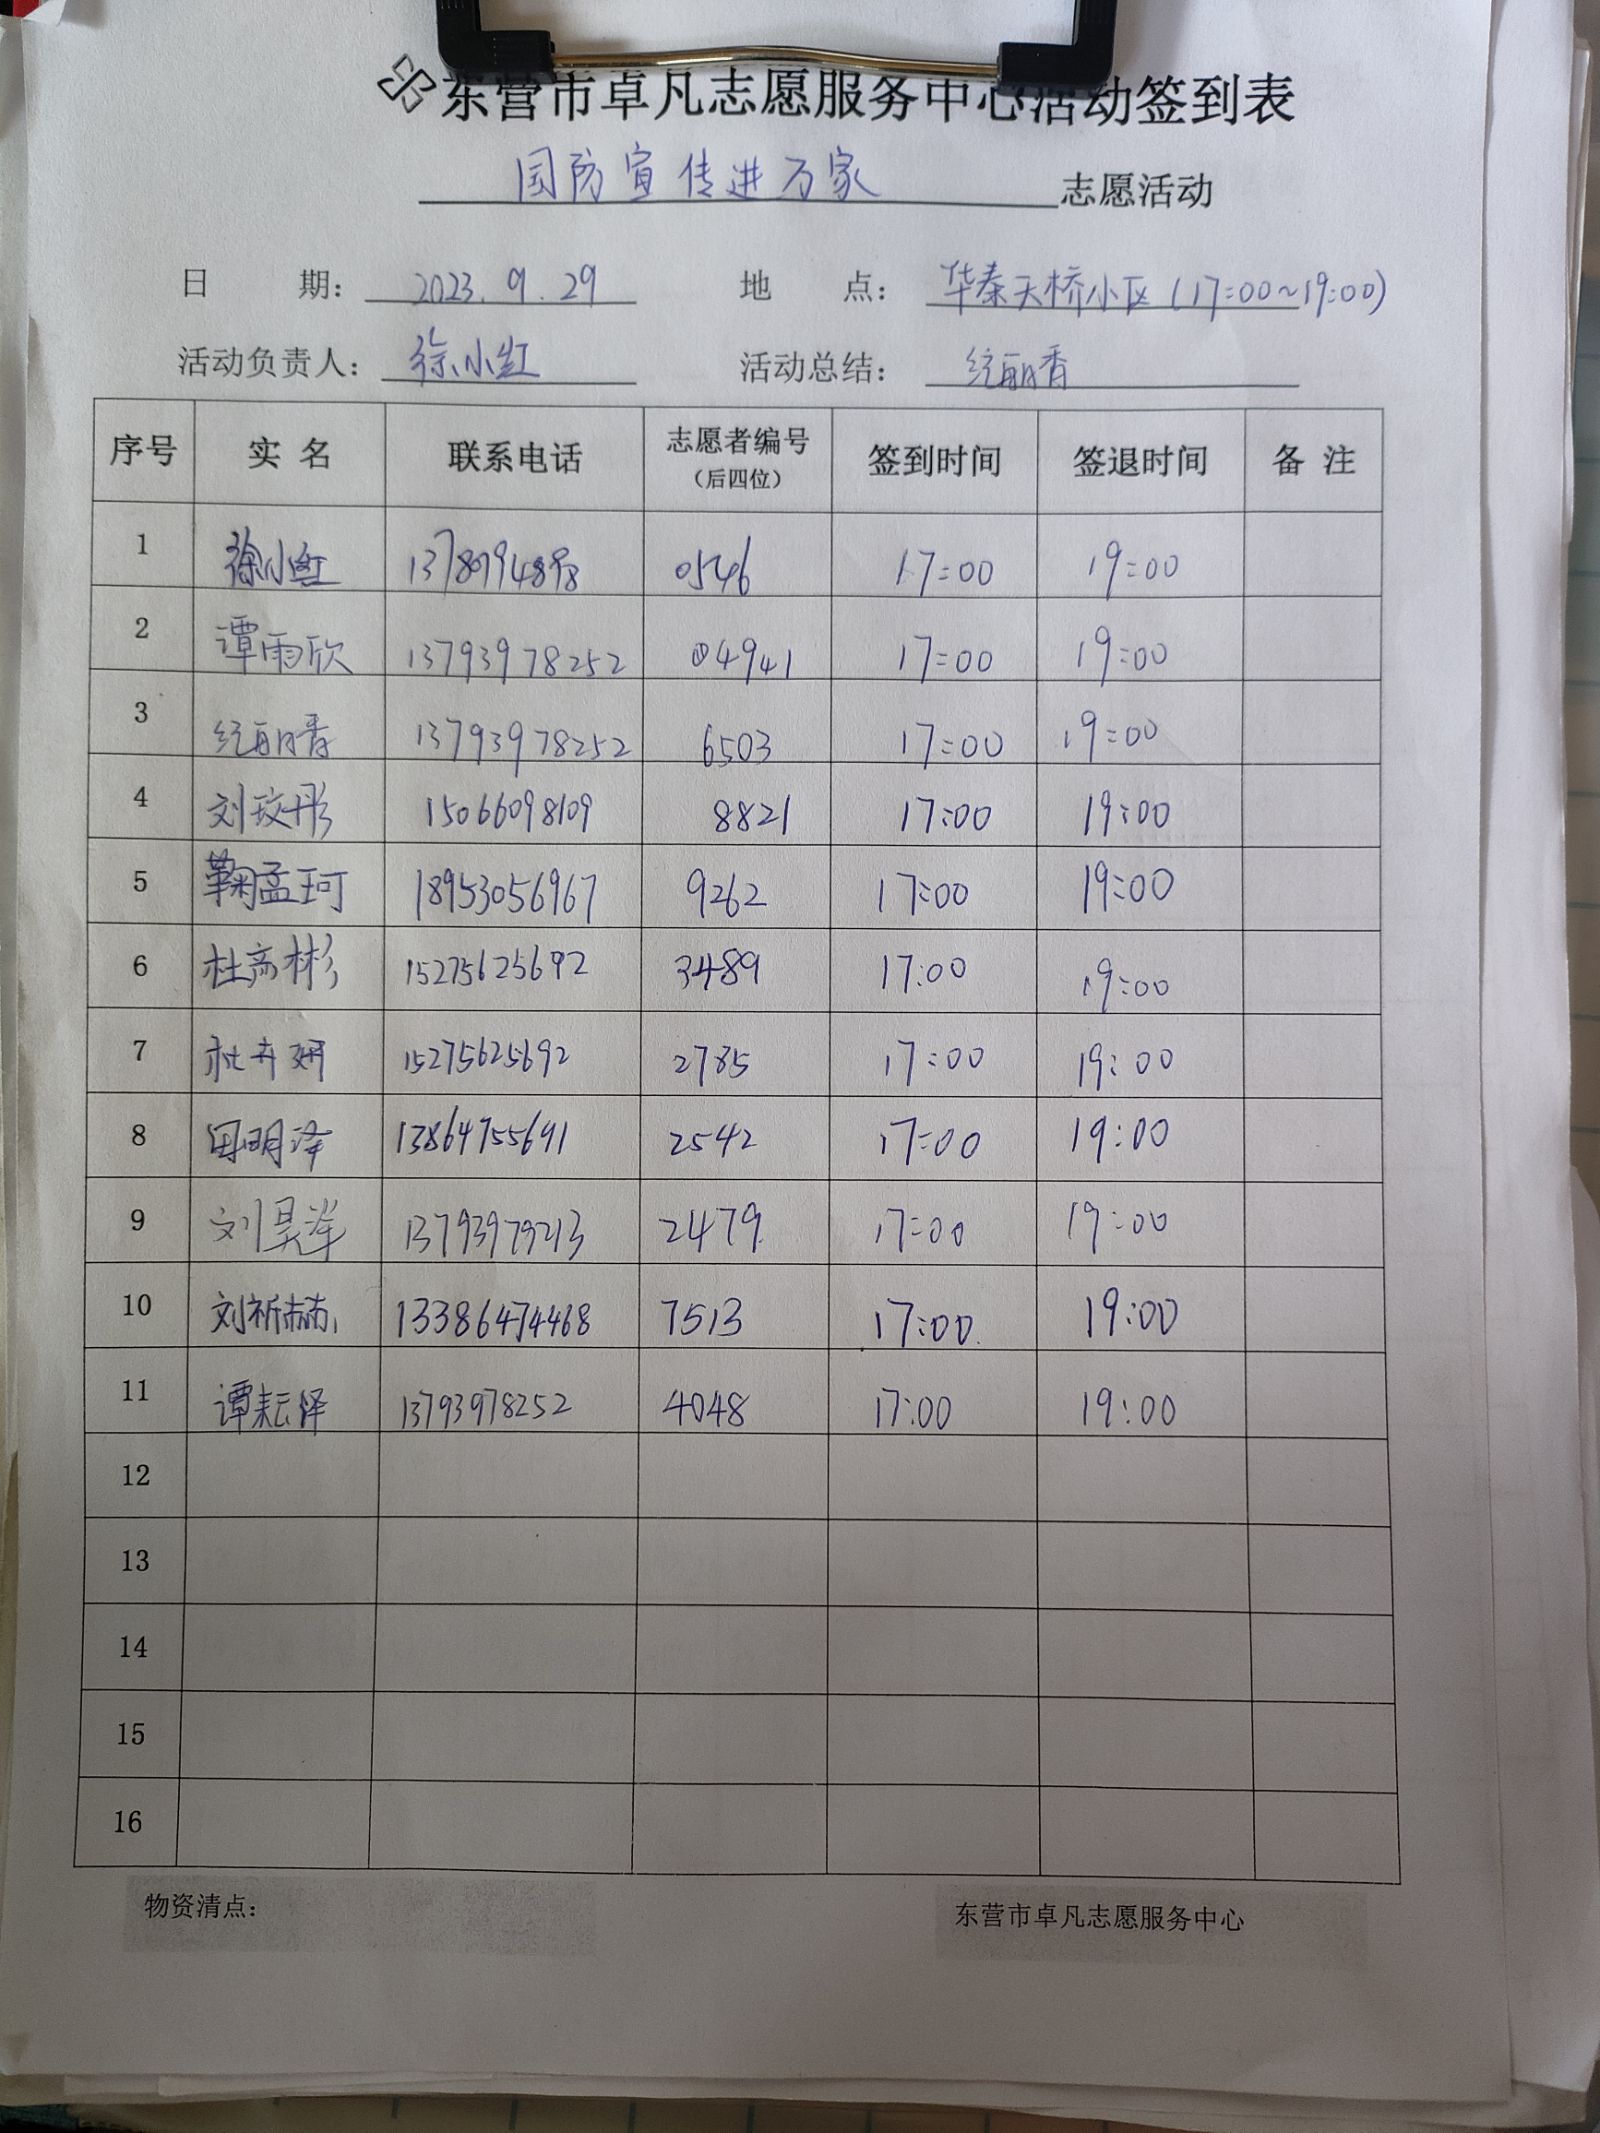 东营市卓凡志愿服务中心活动签到表
国防宣传进万家 志愿活动
日 期： 2023.9.29 地 点： 华泰天桥小区（17:00~19:00）
活动负责人： 徐小红 活动总结： 丽香
序号 实 名 联系电话 志愿者编号（后四位） 签到时间 签退时间 备 注
1 徐小红 0546 17:00 19:00
2 谭雨欣 13793978252 04941 17:00 19:00
3 丽香 13793978252 6503 17:00 19:00
4 刘玟彤 15066098109 8821 17:00 19:00
5 鞠孟珂 18953056967 9262 17:00 19:00
6 杜彦彬 15275625692 3489 17:00 19:00
7 杜卉妍 15275625692 2785 17:00 19:00
8 田明泽 13864755691 2542 17:00 19:00
9 刘昊洋 2479 17:00 19:00
10 刘祈赫 13386474468 7513 17:00 19:00
11 谭耘泽 13793978252 4048 17:00 19:00
12
13
14
15
16
物资清点： 东营市卓凡志愿服务中心